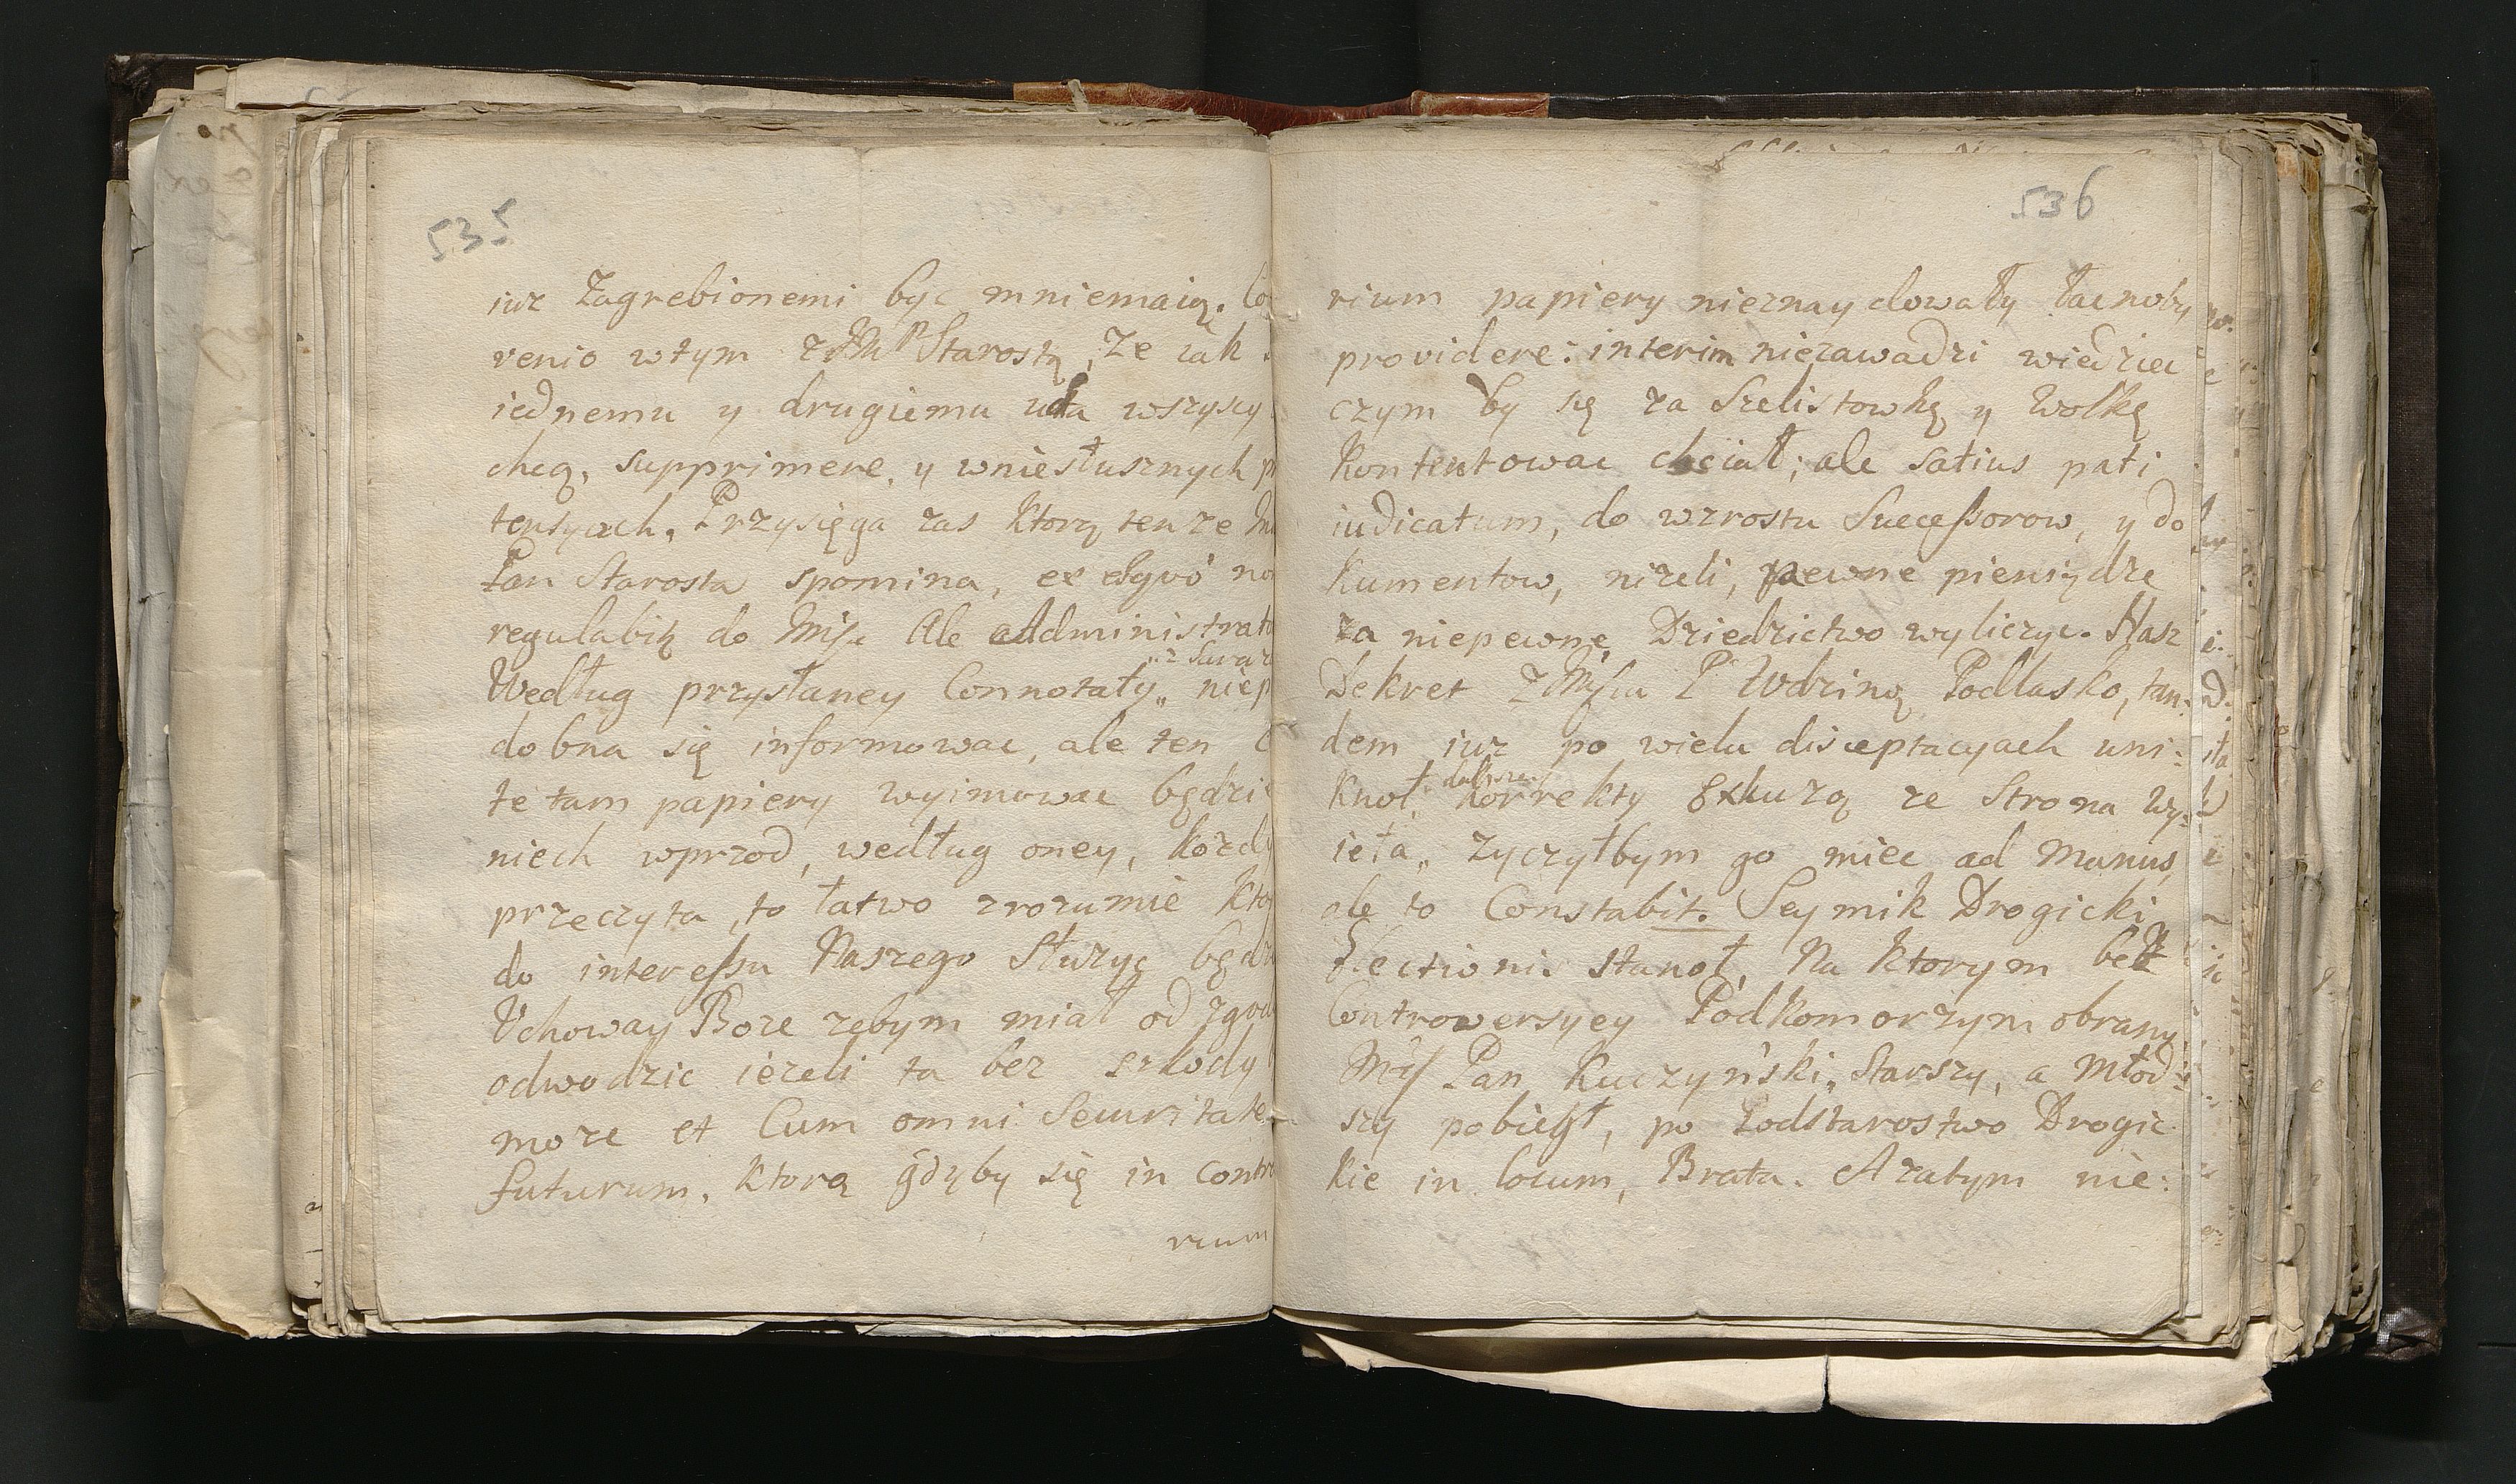 535
iuz Zagrebionemi byc mniemaią. Co
venio wtym z JMP Starostą, Ze iak
iednemu y drugiemu uda wszyscy
chcą, supprimere, y wniesłusznych pr
tensyach. Przysięga zas ktorą tenze
Pan Starosta spomina, ex no
regulabit do Ale Administrato
Według przysłaney Connotaty„ niep
dobna się informowac, ale ten
te tam papiery wyimowac będzie
niech wprzod, według oney, kozdy
przeczyta, to łatwo zrozumie kto
do interessu Naszego Służyc będz
Uchoway Boze zebym miał od zgod
odwodzic iezeli ta bez szkody
moze et Cum omni Securitate
futurum, ktora gdyby się in contra
rium
536
rium papiery nieznaydowały łacnoby
providere: interim niezawadzi wiedziec
czym by się za Szelistowkę y Wolkę
kontentowac chciał; ale satius pati
iudicatum, do wzrostu Successorow, y do
kumentow, nizeli, pewne pieniądze
za niepewne Dziedzictwo wyliczyc. Nasz
Dekret z P Wodziną Podlasko, tan:
dem iuz po wielu disceptacyach uni:
knoł, korrekty Exkuzą ze Strona Wy:
ieła„ Zyczyłbym go miec ad manus,
ale to Constabit. Seymik Drogicki
Electionis stanoł, Na ktorym bez
Controwersyey Podkomorzym obrany
Pan Kuczyński„ Starszy, a Młod:
szy pobiegł, po Podstarostwo Drogic
kie in locum, Brata. A zatym nie: